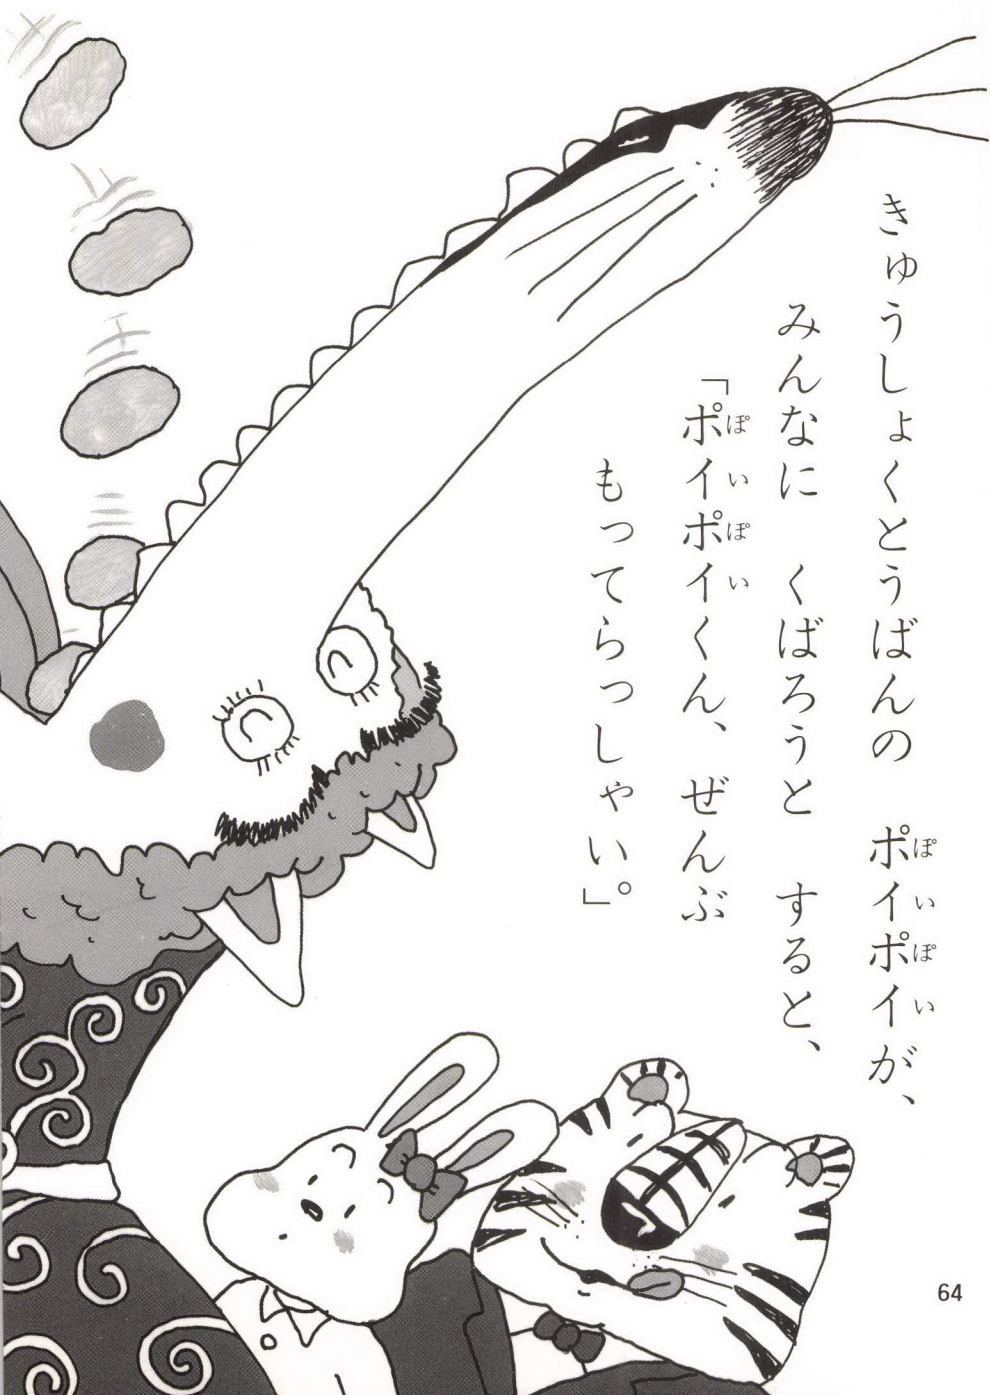 きゅうしょくとうばんの　ポイポイが、
ぽいぽい
みんなに　くばろうと　すると、
「ポイポイくん、ぜんぶ
ぽいぽい
もってらっしゃい」。
64